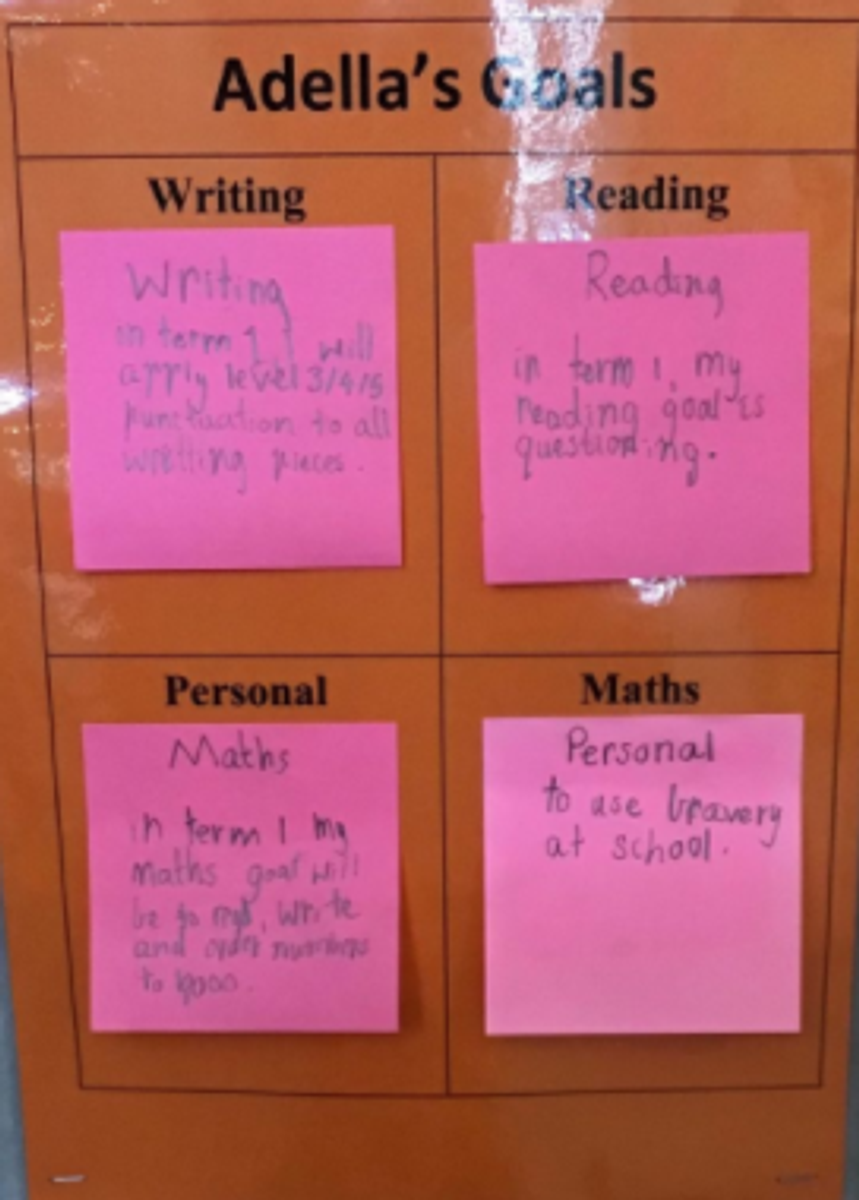 Adella's Goals
Writing
Writing
in term 1 I will
apply level 3/4/5
punctuation to all
writting pieces.
Reading
Reading
in term 1, my
reading goal is
questioning.
Personal
Maths
in term 1 my
maths goal will
be to read, write
and order numbers
to
Maths
Personal
to use bravery
at school.